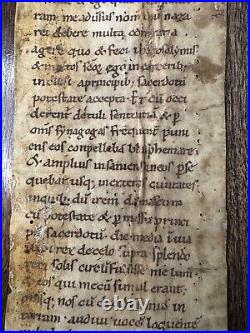 ram; me adusus nom naza
rei debere multa contraria
agere quod & feci iherosolymis
& multos scor ego in carcerib;
inclusi, a principib; sacerdotu
potestate accepta. Et cu occi
derent detuli sententia. & p
oms synagogas frequent puni
ens eos compelleba blasphemare.
& amplius insaniens in eos pse
quebar usq; in exteras ciuitates
inquib; du irem damascum
cu potestate & pmissu princi
sacerdotu. die media in uia
rex decelo supra splendo
rem solis circufulsisse me lum
eos qui mecum simul erant.
nos cu in
terram. audiui uocem loquente